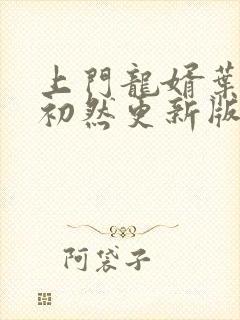 上門龍婿葉
初然更新版
阿袋子